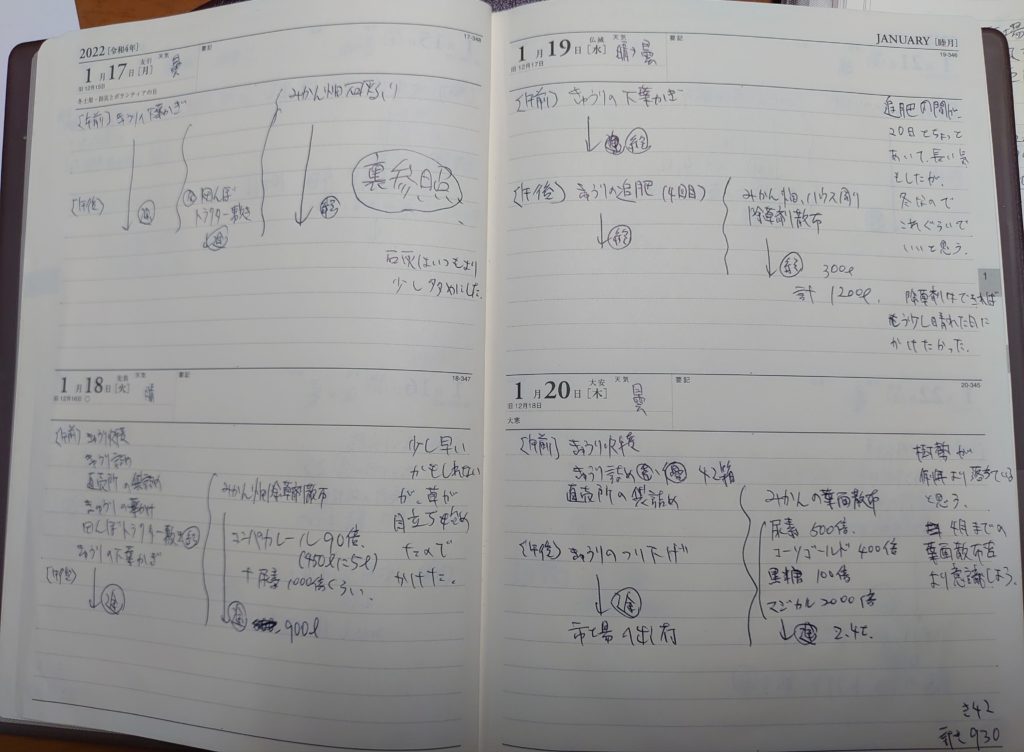 2022[令和4年]
1月17日[月] 友引 天気 曇 要記
17-348
旧12月15日
冬土用・防災とボランティアの日
〔午前〕きゅうりの下葉かぎ
みかん畑石灰ふり
裏参照
田んぼ
トラクター敷き
〔午後〕
石灰はいつもより
少し多めにした。
1月18日[火] 先負 天気 晴 要記
18-347
旧12月16日
〔午前〕きゅうり収穫
きゅうり詰め
直売所の袋詰め
きゅうりの葉かけ
田んぼトラクター敷き
きゅうりの下葉かぎ
〔午後〕
みかん畑除草剤散布
コンパカレール90倍
(450ℓに5ℓ)
+尿素1000倍くらい。
900ℓ
少し早い
かもしれない
が、草が
目立ち始め
たので
かけた。
JANUARY[睦月]
1月19日[水] 仏滅 天気 晴のち曇 要記
19-346
旧12月17日
〔午前〕きゅうりの下葉かぎ
〔午後〕きゅうりの追肥(4回目)
みかん畑、ハウス周り
除草剤散布
300ℓ
計1200ℓ.
追肥の間が、
20日とちょっと
あいて、長い気
もしたが、
冬なので
これぐらいで
いいと思う。
除草剤はできれば
もう少し晴れた日に
かけたかった。
1
1月20日[木] 大安 天気 曇 要記
20-345
旧12月18日
大寒
〔午前〕きゅうり収穫
きゅうり詰め 42箱
直売所の袋詰め
〔午後〕きゅうりのつり下げ
市場への出し方
みかんの葉面散布
尿素 500倍.
コーソゴールド 400倍
黒糖 100倍
マジカル2000倍
2.4t.
樹勢が
例年より落ちている
と思う。
4月までの
葉面散布を
より意識しよう。
き42
計き930